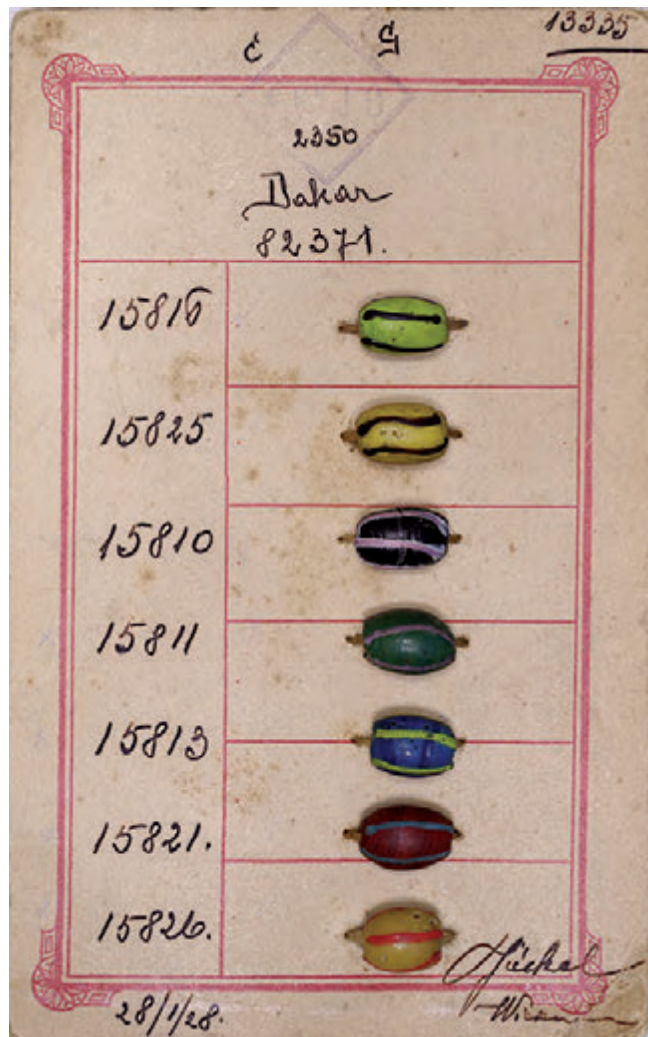 13335
2350
Dakar
82371.
15816
15825
15810
15811
15813
15821.
15826.
28/1/28.